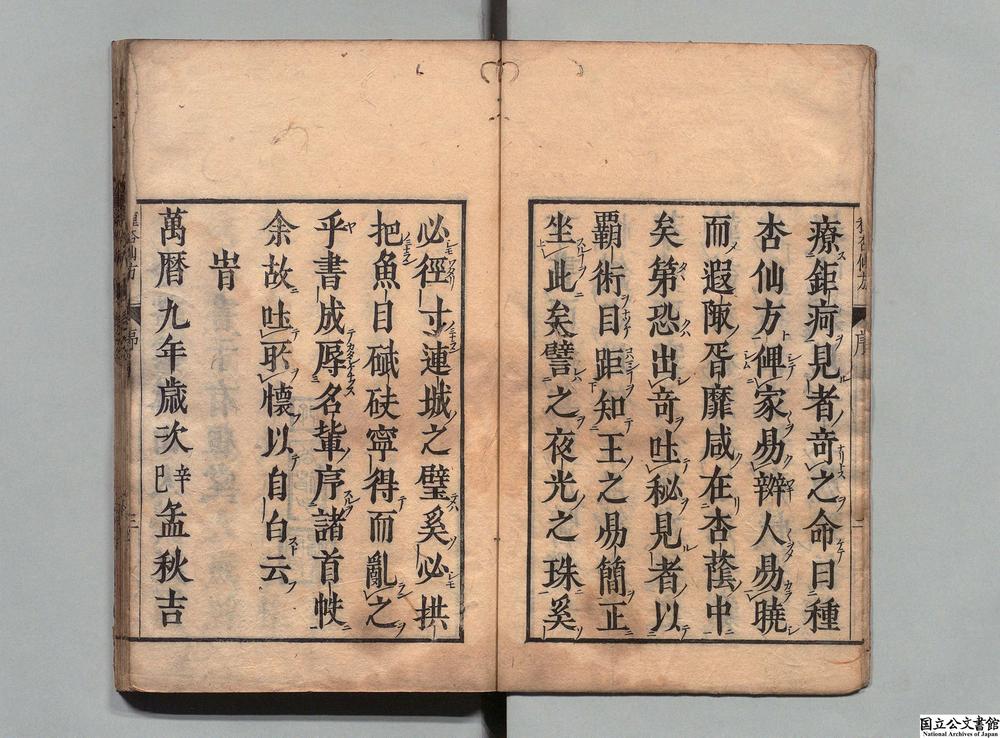 療鉅疴見者竒之命曰種
杏仙方俾家易辦人易曉
而遐陬胥靡咸在杏蔭中
矣第恐出竒吐秘見者以
覇術目距知王之易簡正
坐此矣譬之夜光之珠奚
必徑寸連城之璧奚必拱
把魚目碔砆寧得而亂之
乎書成辱名輩序諸首帙
余故吐所懷以自白云
旹
萬曆九年歲次辛巳孟秋吉
序
二
三
国立公文書館
National Archives of Japan